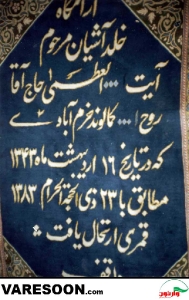 آرامگاه
خلد آشیان مرحوم
آیت ا... العظمی حاج آقا
روح ا... کمالوند خرم آباد ی
که در تاریخ ۱۶ اردیبهشت ماه ۱۳۴۳
مطابق با ۲۳ ذی الحجة الحرام ۱۳۸۳
قمری ارتحال یافت
واقف
VARESOON.com
وارثون